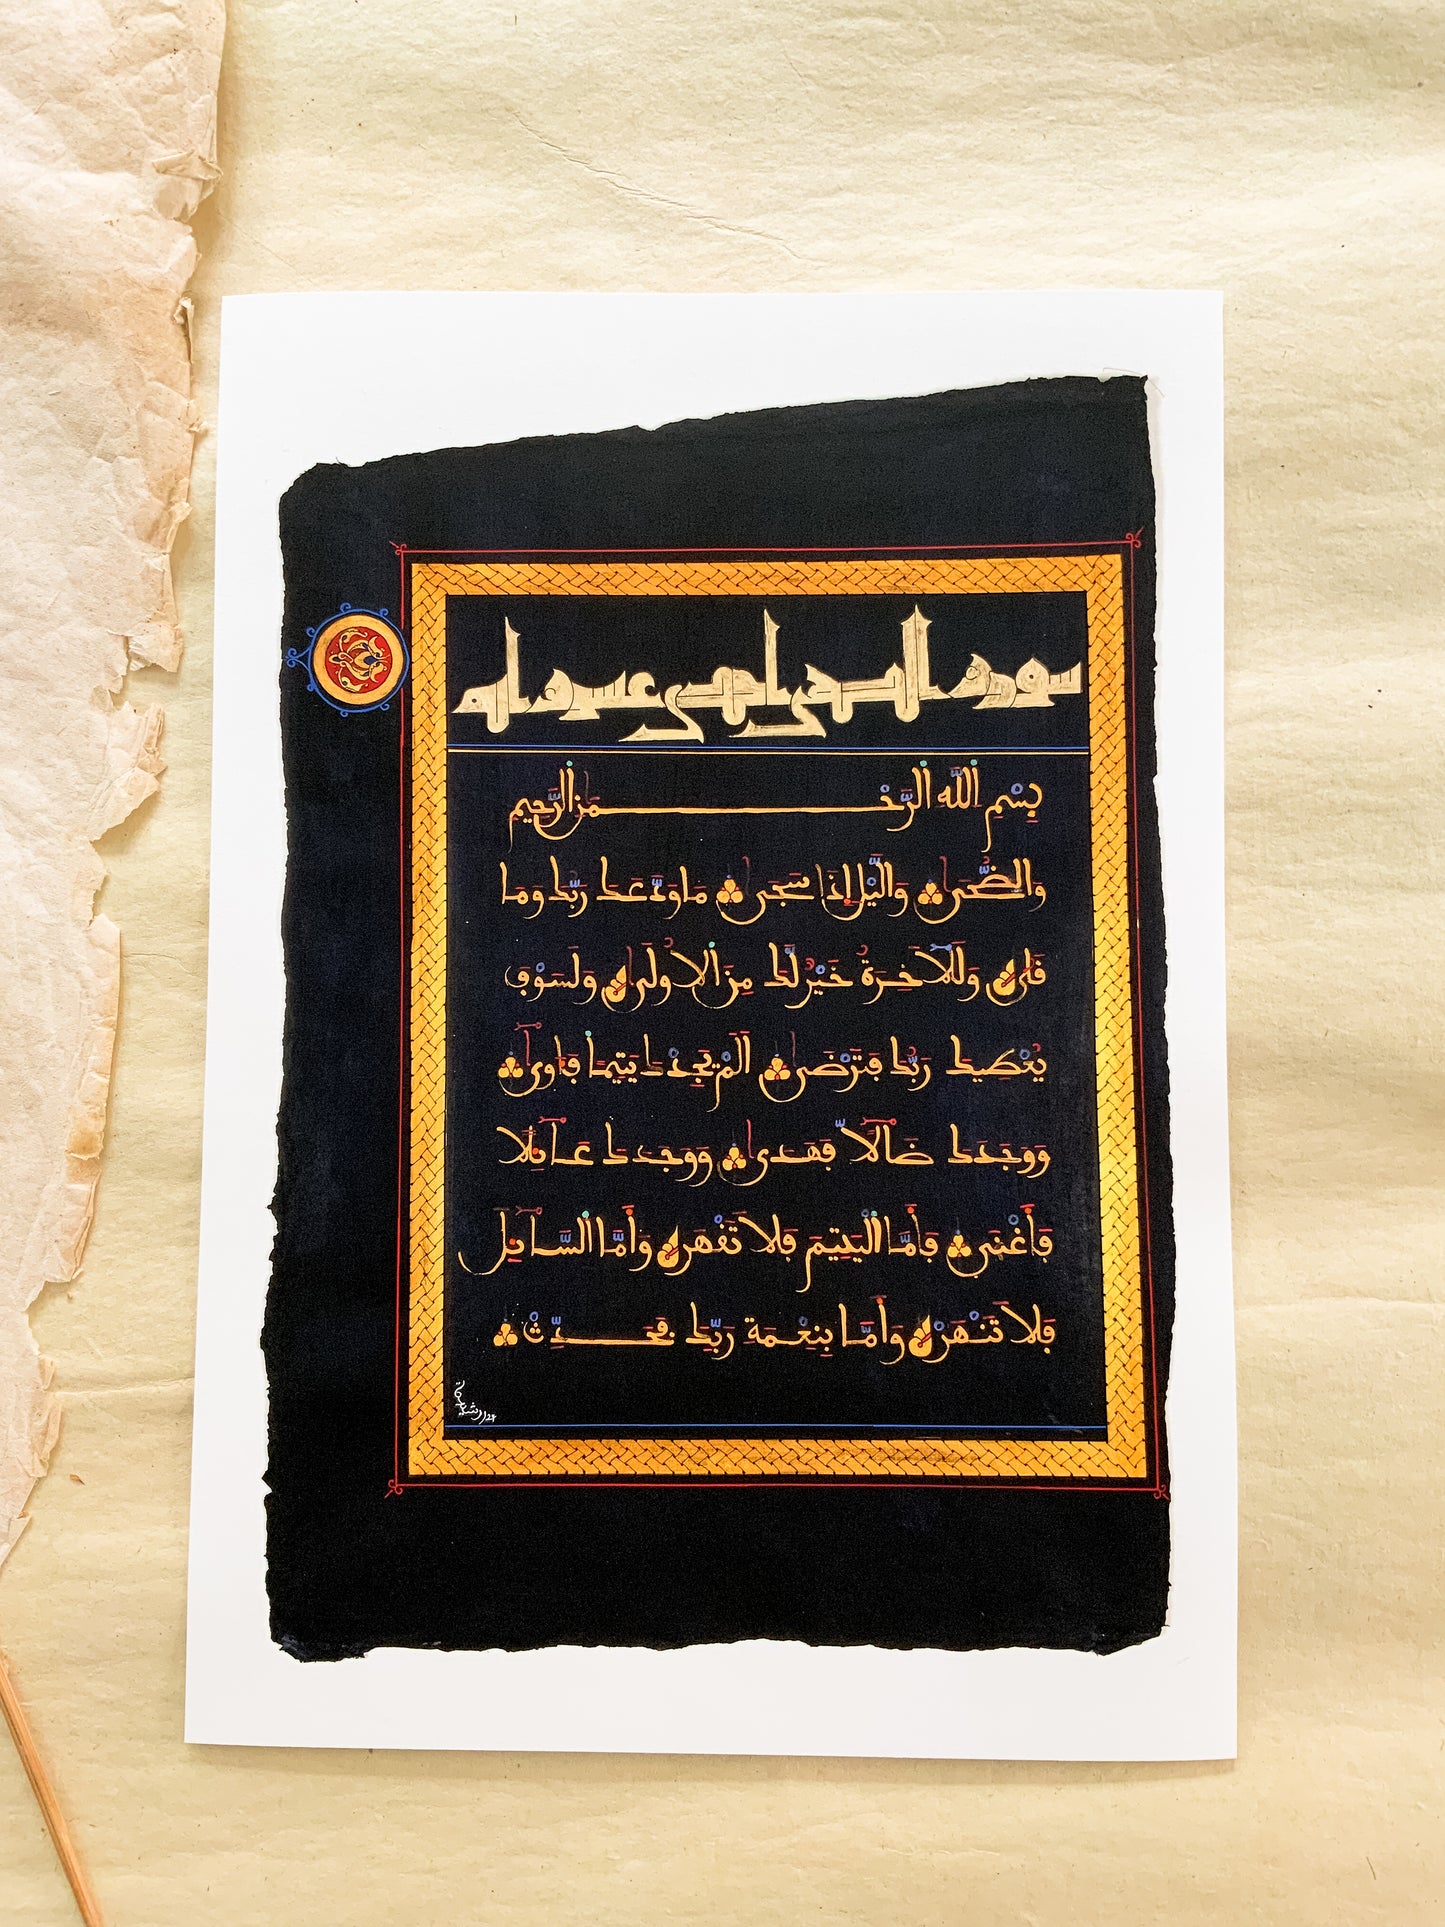 سورة الضحى إحدى عشرة آية
بِسْمِ ٱللَّهِ ٱلرَّحْمَٰنِ ٱلرَّحِيمِ
وَٱلضُّحَىٰ وَٱلَّيْلِ إِذَا سَجَىٰ مَا وَدَّعَكَ رَبُّكَ وَمَا
قَلَىٰ وَلَلْآخِرَةُ خَيْرٌ لَّكَ مِنَ ٱلْأُولَىٰ وَلَسَوْفَ
يُعْطِيكَ رَبُّكَ فَتَرْضَىٰ أَلَمْ يَجِدْكَ يَتِيمًا فَـَٔاوَىٰ
وَوَجَدَكَ ضَآلًّا فَهَدَىٰ وَوَجَدَكَ عَآئِلًا
فَأَغْنَىٰ فَأَمَّا ٱلْيَتِيمَ فَلَا تَقْهَرْ وَأَمَّا ٱلسَّآئِلَ
فَلَا تَنْهَرْ وَأَمَّا بِنِعْمَةِ رَبِّكَ فَحَدِّثْ